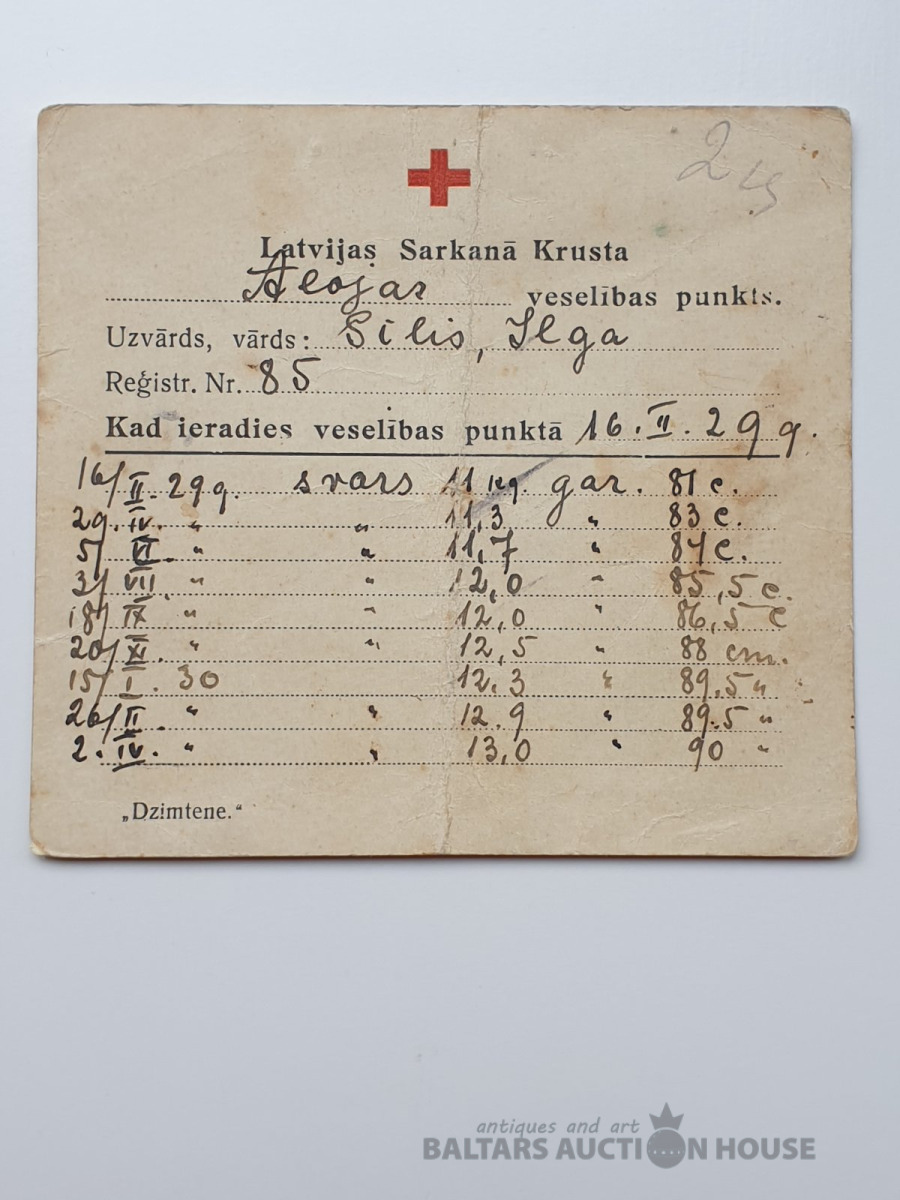 2 ls
Latvijas Sarkanā Krusta
Alojas veselības punkts.
Uzvārds, vārds: Silis, Ilga
Reģistr. Nr. 85
Kad ieradies veselības punktā 16. II. 29 g.
16/II. 29 g. svars 11 kg. gar. 81 c.
29. IV. " " 11,3 " 83 c.
5/VI. " " 11,7 " 84 c.
3/VII. " " 12,0 " 85,5 c.
18/IX " " 12,0 " 86,5 c
20/XI. " " 12,5 " 88 cm.
15/I. 30 12.3 " 89.5 "
26/II. " " 12.9 " 89.5 "
2. IV. " " 13,0 " 90 "
„Dzimtene."
antiques and art
BALTARS AUCTION HOUSE